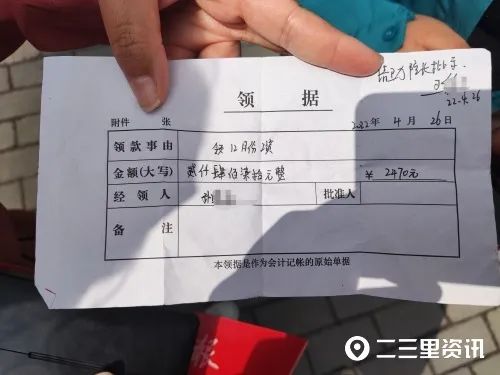 请王院长批示.
22.4.26
领 据
附件 张
2022 年 4 月 26 日
领款事由 领12月份工资
金额(大写) 贰仟肆佰柒拾元整 ￥ 2470元
经领人 批准人
备 注
本领据是作为会计记帐的原始单据
报
二三里资讯